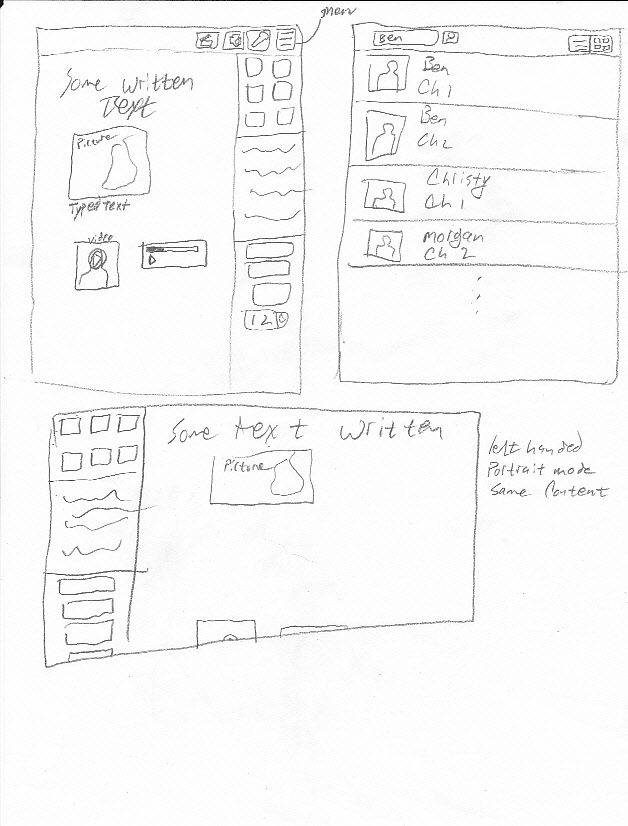 menu
Some written
Text
Picture
Typed text
video
12
Ben
Ben
Ch 1
Ben
Ch 2
Christy
Ch 1
Morgan
Ch 2
Some text written
Picture
left handed
Portrait mode
Same Content